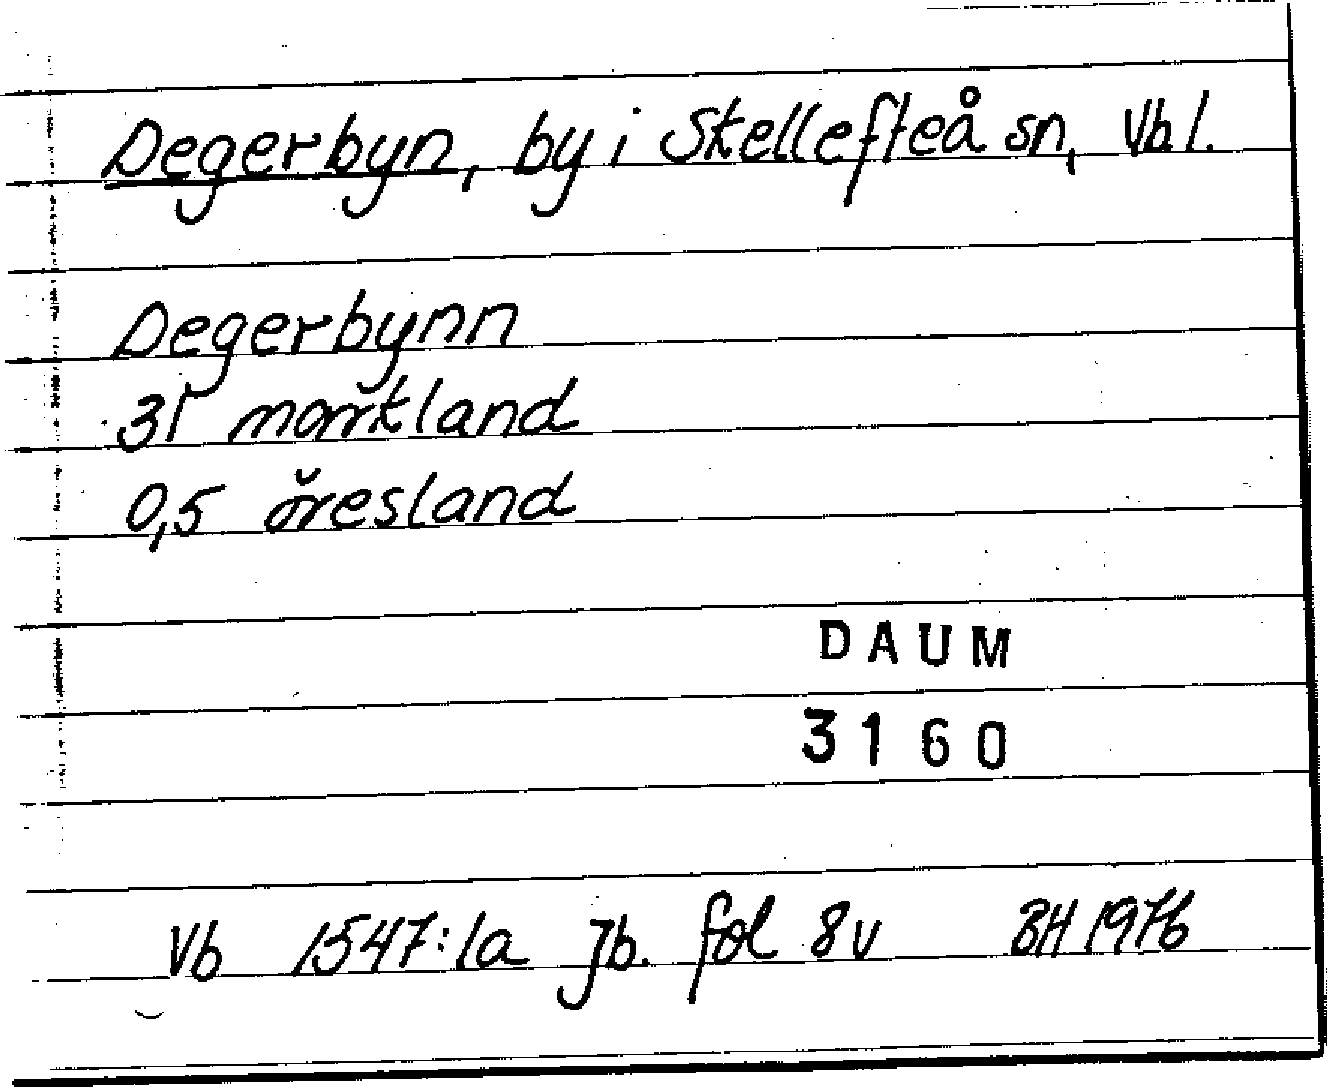 Degerbyn, by i Skellefteå sn, Vbl.
Degerbynn
31 markland
0,5 öresland
DAUM
3160
Vb 1547:1a Jb. fol 8v BH 1976